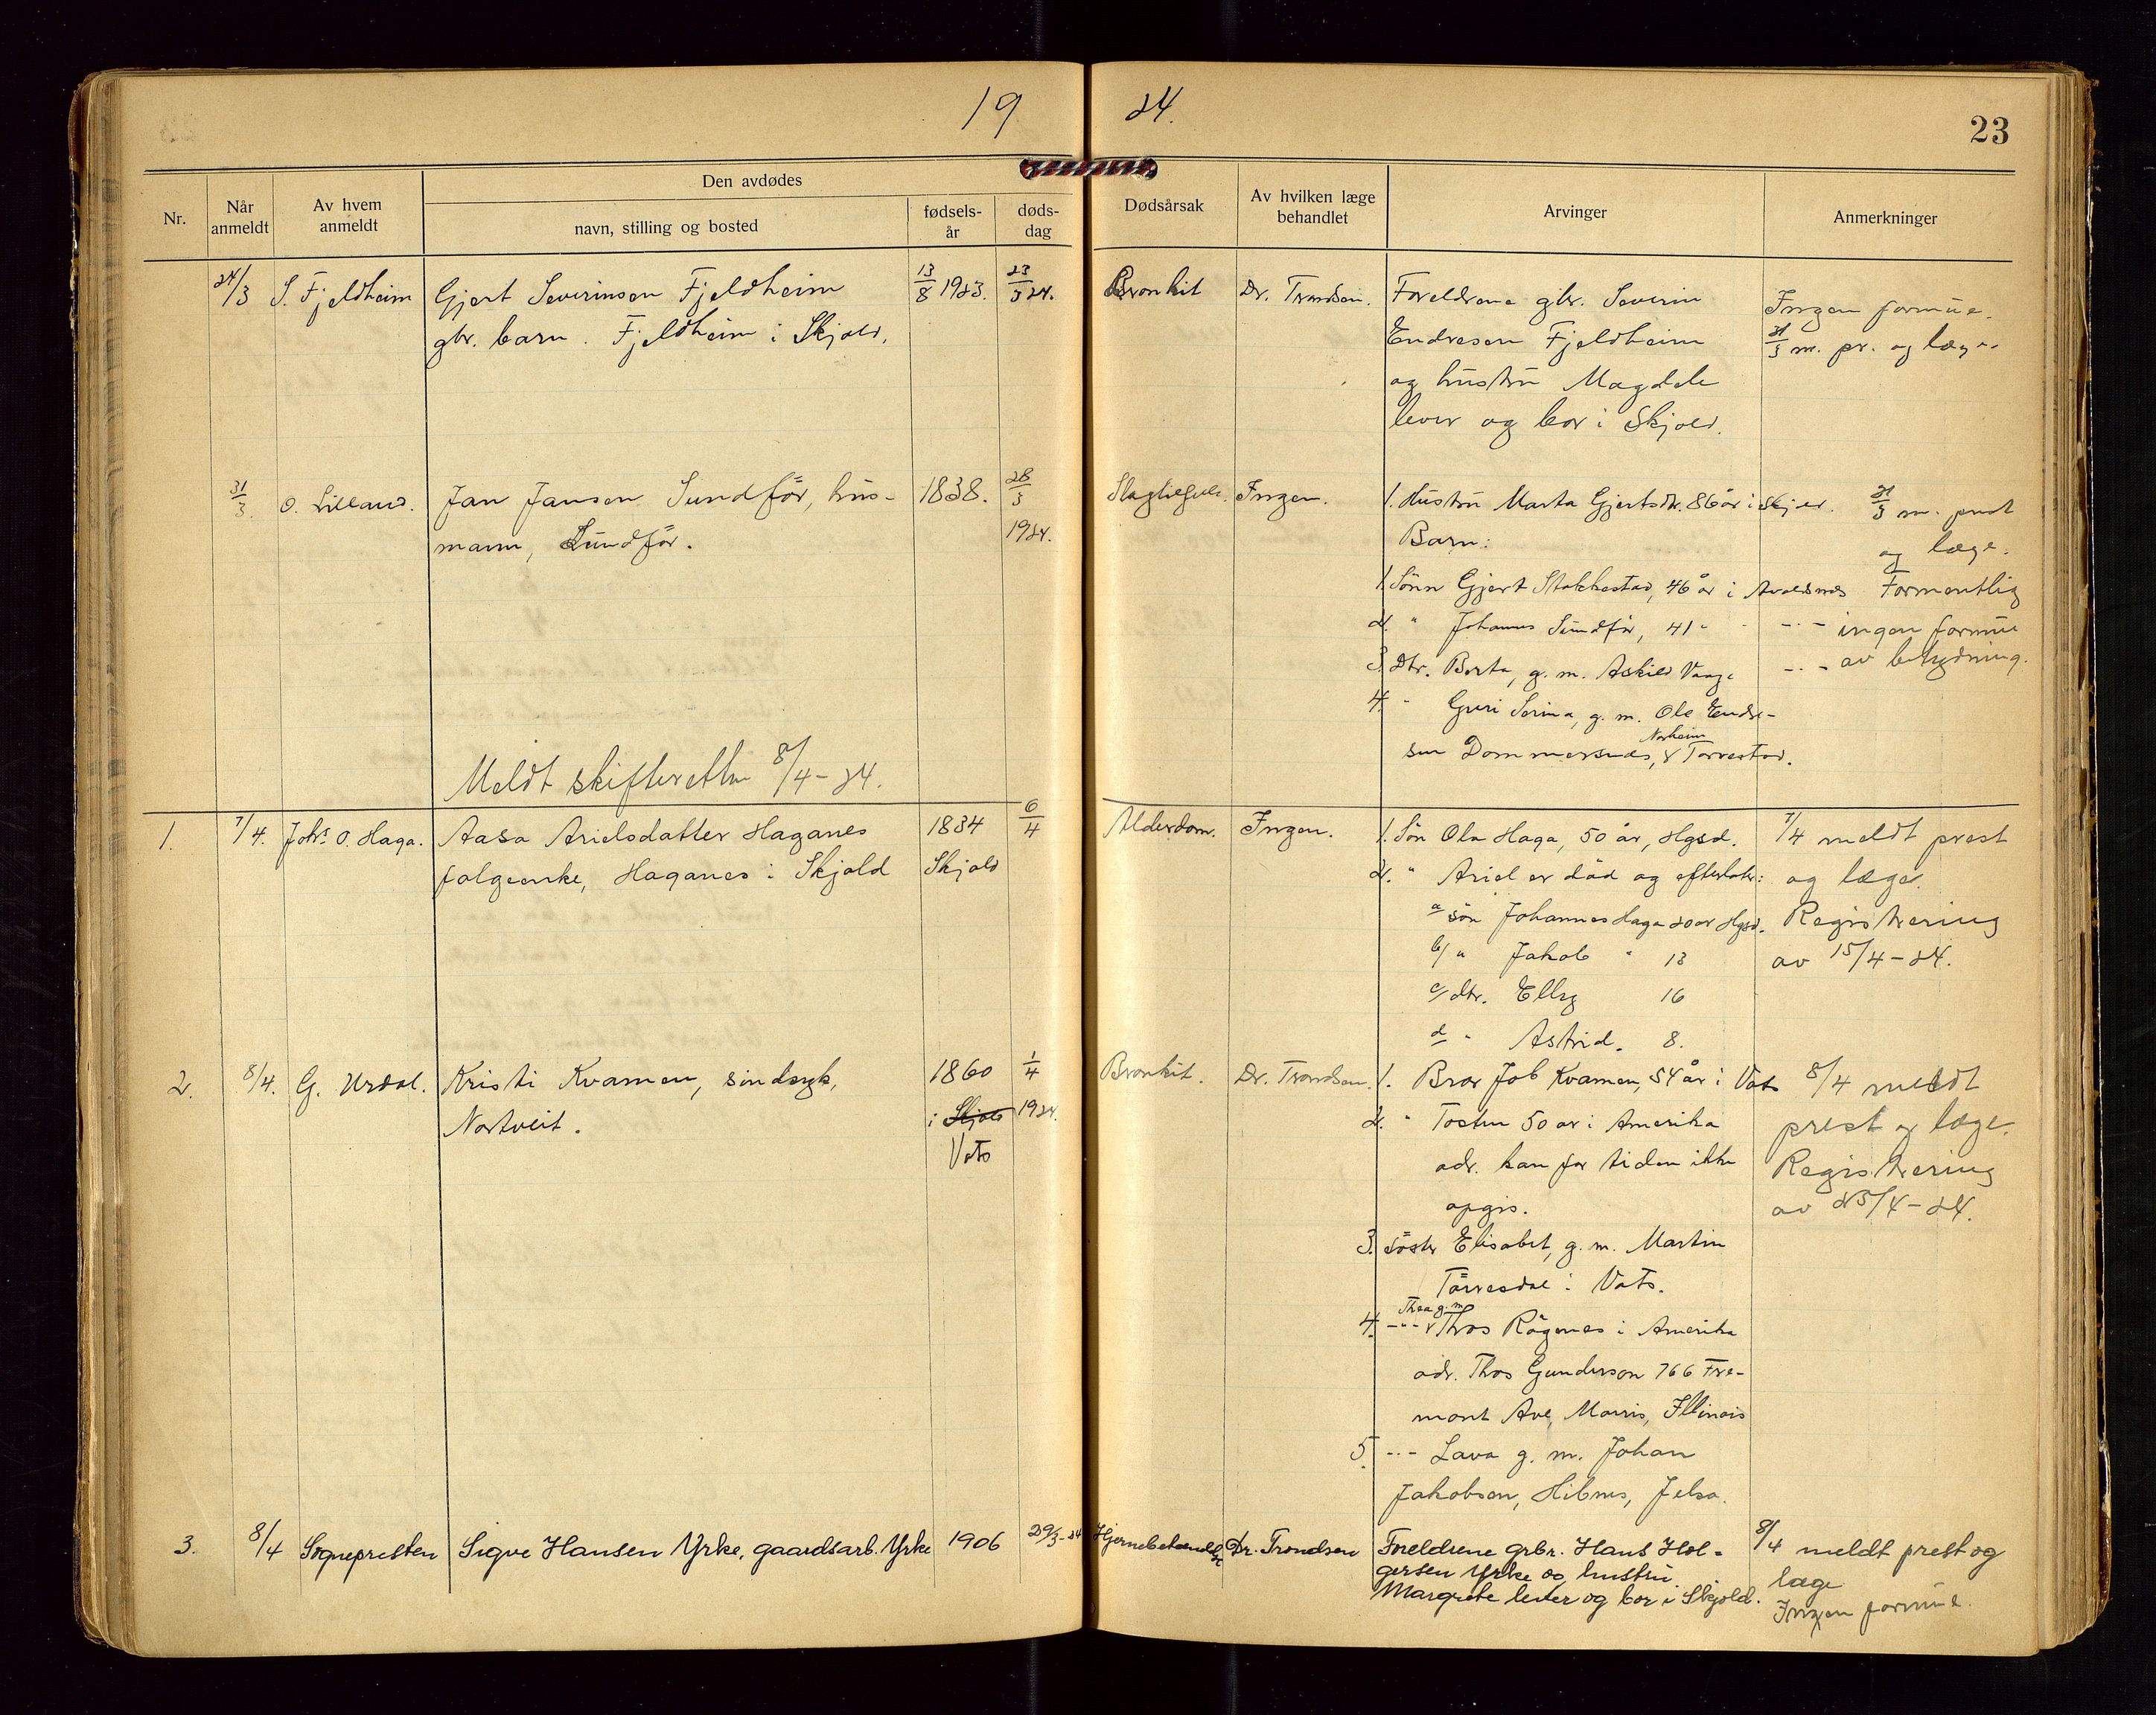 19 24.
23
Nr.
Når anmeldt
Av hvem anmeldt
Den avdødes
navn, stilling og bosted
fødsels-år
døds-dag
Dødsårsak
Av hvilken læge behandlet
Arvinger
Anmerkninger
24/3 S. Fjeldheim
Gjert Severinsen Fjeldheim
gbr. barn. Fjeldheim i Skjold.
13/8 1923.
23/3 24.
Bronkit
Dr. Trondsen.
Foreldrene gbr. Severin
Endresen Fjeldheim
og hustru Magdele
lever og bor i Skjold.
Ingen formue.
31/3 m. pr. og læge
31/3. O. Lilland.
Jan Jansen Sundför, hus-
mann, Sundför.
1838.
28/3
1924.
Ingen.
1. Hustru Marta Gjertsdtr. 86 år i Skjold.
Barn:
1. Sönn Gjert Stakkestad, 46 år i Avaldsnes
2. " Johannes Sundför, 41 " - " -
3. Dtr. Berta, g. m. Askild Vaage - " -
4. " Guri Serina, g. m. Ole Endre-
sen Dommersnes, Norheim Torvestad.
31/3 m. prest
og læge.
Formentlig
ingen formue
av betydning.
Meldt skifteretten 8/4-24.
1. 7/4. Johs. O. Haga.
Aasa Arielsdatter Haganes
folgeenke, Haganes i Skjold
1834
Skjold
6/4
Alderdom.
Ingen.
1. Sön Ola Haga, 50 år, Hgsd.
2. " Ariel er död og efterlater:
a sön Johannes Haga 20 år Hgsd.
b/ " Jakob " 18
c/ dtr. Elly 16
d " Astrid. 8.
7/4 meldt prest
og læge.
Registrering
av 15/4-24.
2. 8/4. G. Urdal.
Kristi Kvamen, sindsyk,
Nortveit.
1860
i Skjold
Vats
1/4
1924.
Bronkit.
Dr. Trondsen.
1. Bror Job Kvamen, 54 år i Vats
2. " Tosten 50 år i Amerika
adr. kan for tiden ikke
opgis.
3. Söster Elisabet, g. m. Martin
Törresdal i Vats.
4. - " - Thea g. m. Thos Rögenes i Amerika
adr. Thos Gunderson 766 Fre-
mont Ave, Morris, Illinois
5. - " - Lava g. m. Johan
Jakobsen, Hibnes, Jelsa.
8/4 meldt
prest og læge.
Registrering
av 25/4-24.
3. 8/4 Sognepresten
Sigve Hansen Yrke, gaardsarb. Yrke
1906
29/3-24
Dr. Trondsen
Foreldrene grbr. Hans Hol-
gersen Yrke og hustru
Margrete lever og bor i Skjold.
8/4 meldt prest og
læge
Ingen formue.